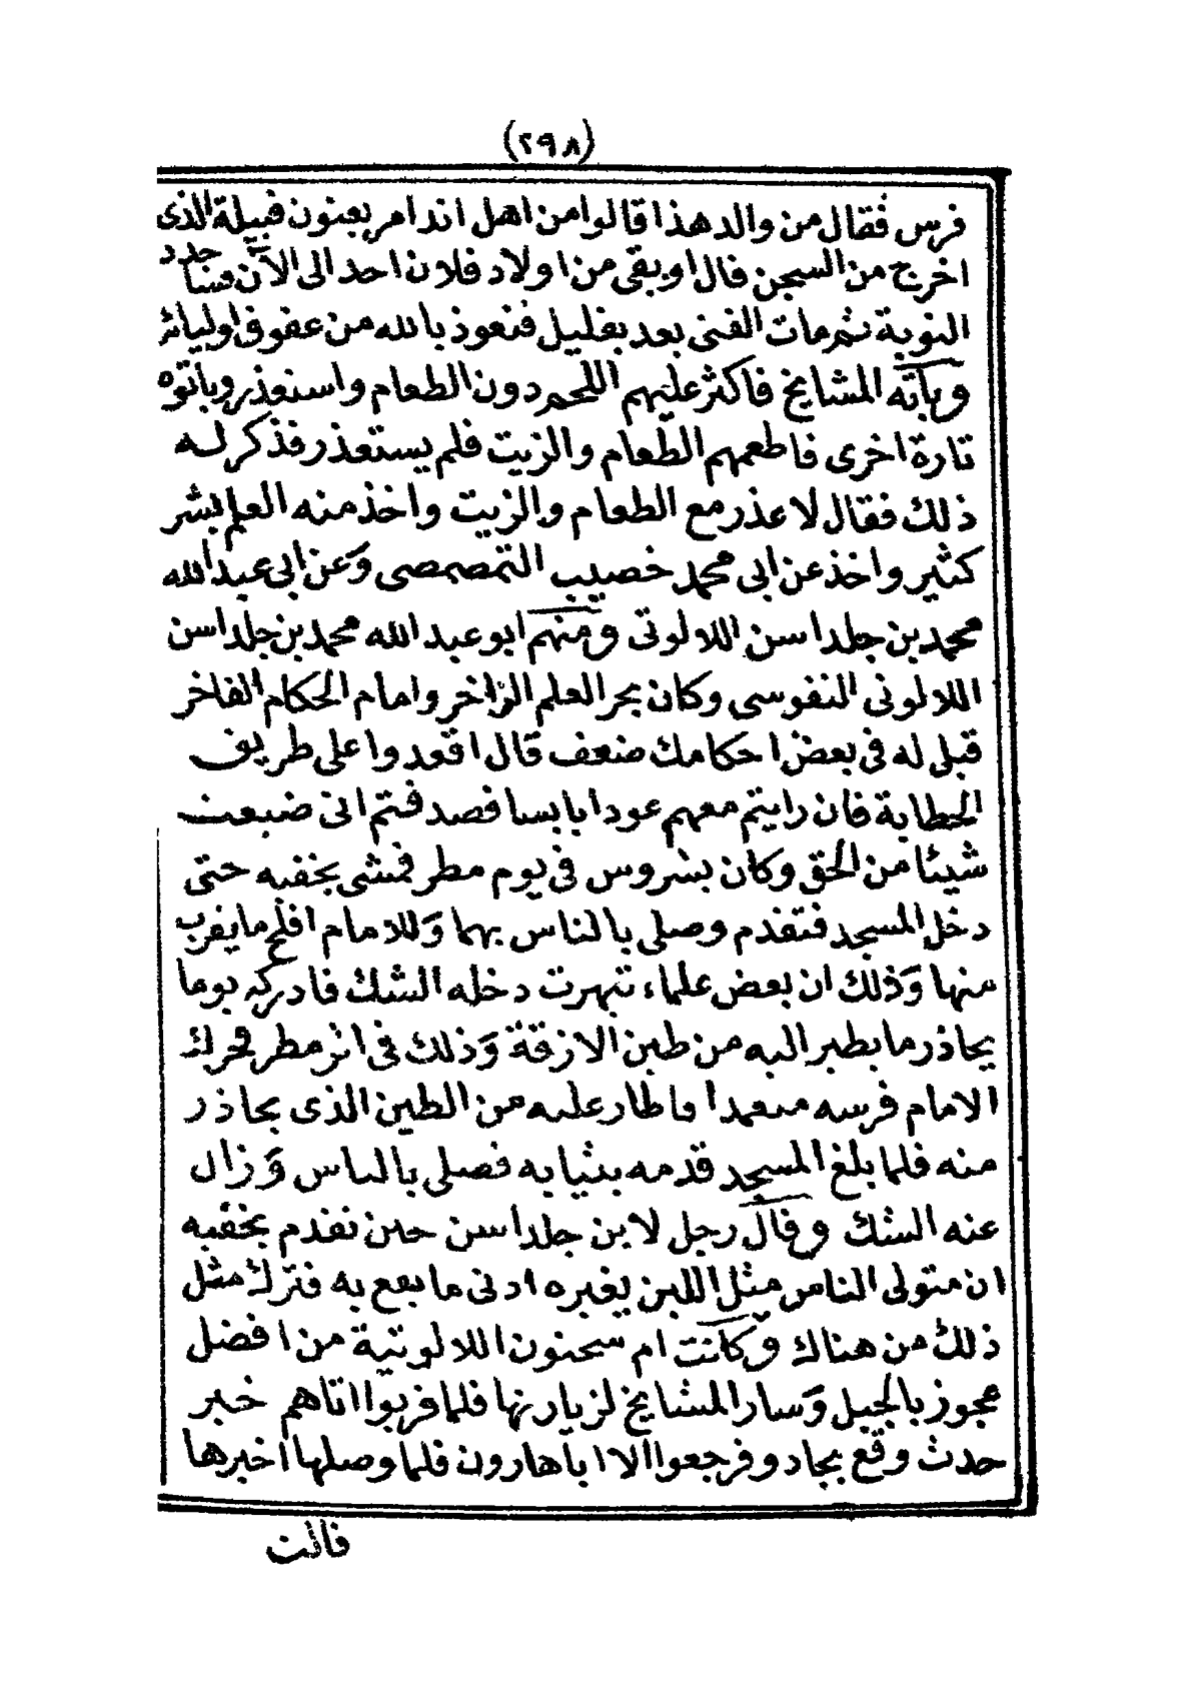 (٢٩٨)
فرس فقال من والد هذا قالوا من اهل اندامر يعنون قبيلة الذى
اخرج من السجن قال او بقى من اولاد فلان احد الى الآن جدد
التوبة ثم مات الفتى بعد بقليل فنعوذ بالله من عقوق اوليائه
وياته المشايخ فاكثر عليهم اللحم دون الطعام واستعذر وياتوه
تارة اخرى فاطعمهم الطعام والزيت فلم يستعذر فذكر له
ذلك فقال لا عذر مع الطعام والزيت واخذ منه العلم بشر
كثير واخذ عن ابى محمد خصيب التمصمصى وَعن ابى عبد الله
محمد بن جلداسن اللالوتى ومنهم ابو عبد الله محمد بن جلداسن
اللالوتى النفوسى وكان بحر العلم الزاخر وامام الحكام الفاخر
قيل له فى بعض احكامك ضعف قال اقعدوا على طريق
الحطابة فان رايتم معهم عودا يابسا فصدقتم انى ضيعت
شيئا من الحق وكان بشروس فى يوم مطر فمشى بخفيه حتى
دخل المسجد فتقدم وصلى بالناس بهما وَللامام افلح ما يقرب
منها وَذلك ان بعض علماء تيهرت دخله الشك فادركه يوما
يحاذر ما يطير اليه من طين الازقة وَذلك فى اثر مطر فحرك
الامام فرسه متعمدا فاطار عليه من الطين الذى يحاذر
منه فلما بلغ المسجد قدمه بثيابه فصلى بالناس وَزال
عنه الشك وقال رجل لابن جلداسن حين تقدم بخفيه
ان متولى الناس مثل اللبن يغيره ادنى ما يقع به فترك مثل
ذلك من هناك وكانت ام سحنون اللالوتية من افضل
عجوز بالجبل وَسار المشايخ لزيارتها فلما قربوا اتاهم خبر
حدث وقع بجادو فرجعوا الا ابا هارون فلما وصلها اخبرها
قالت